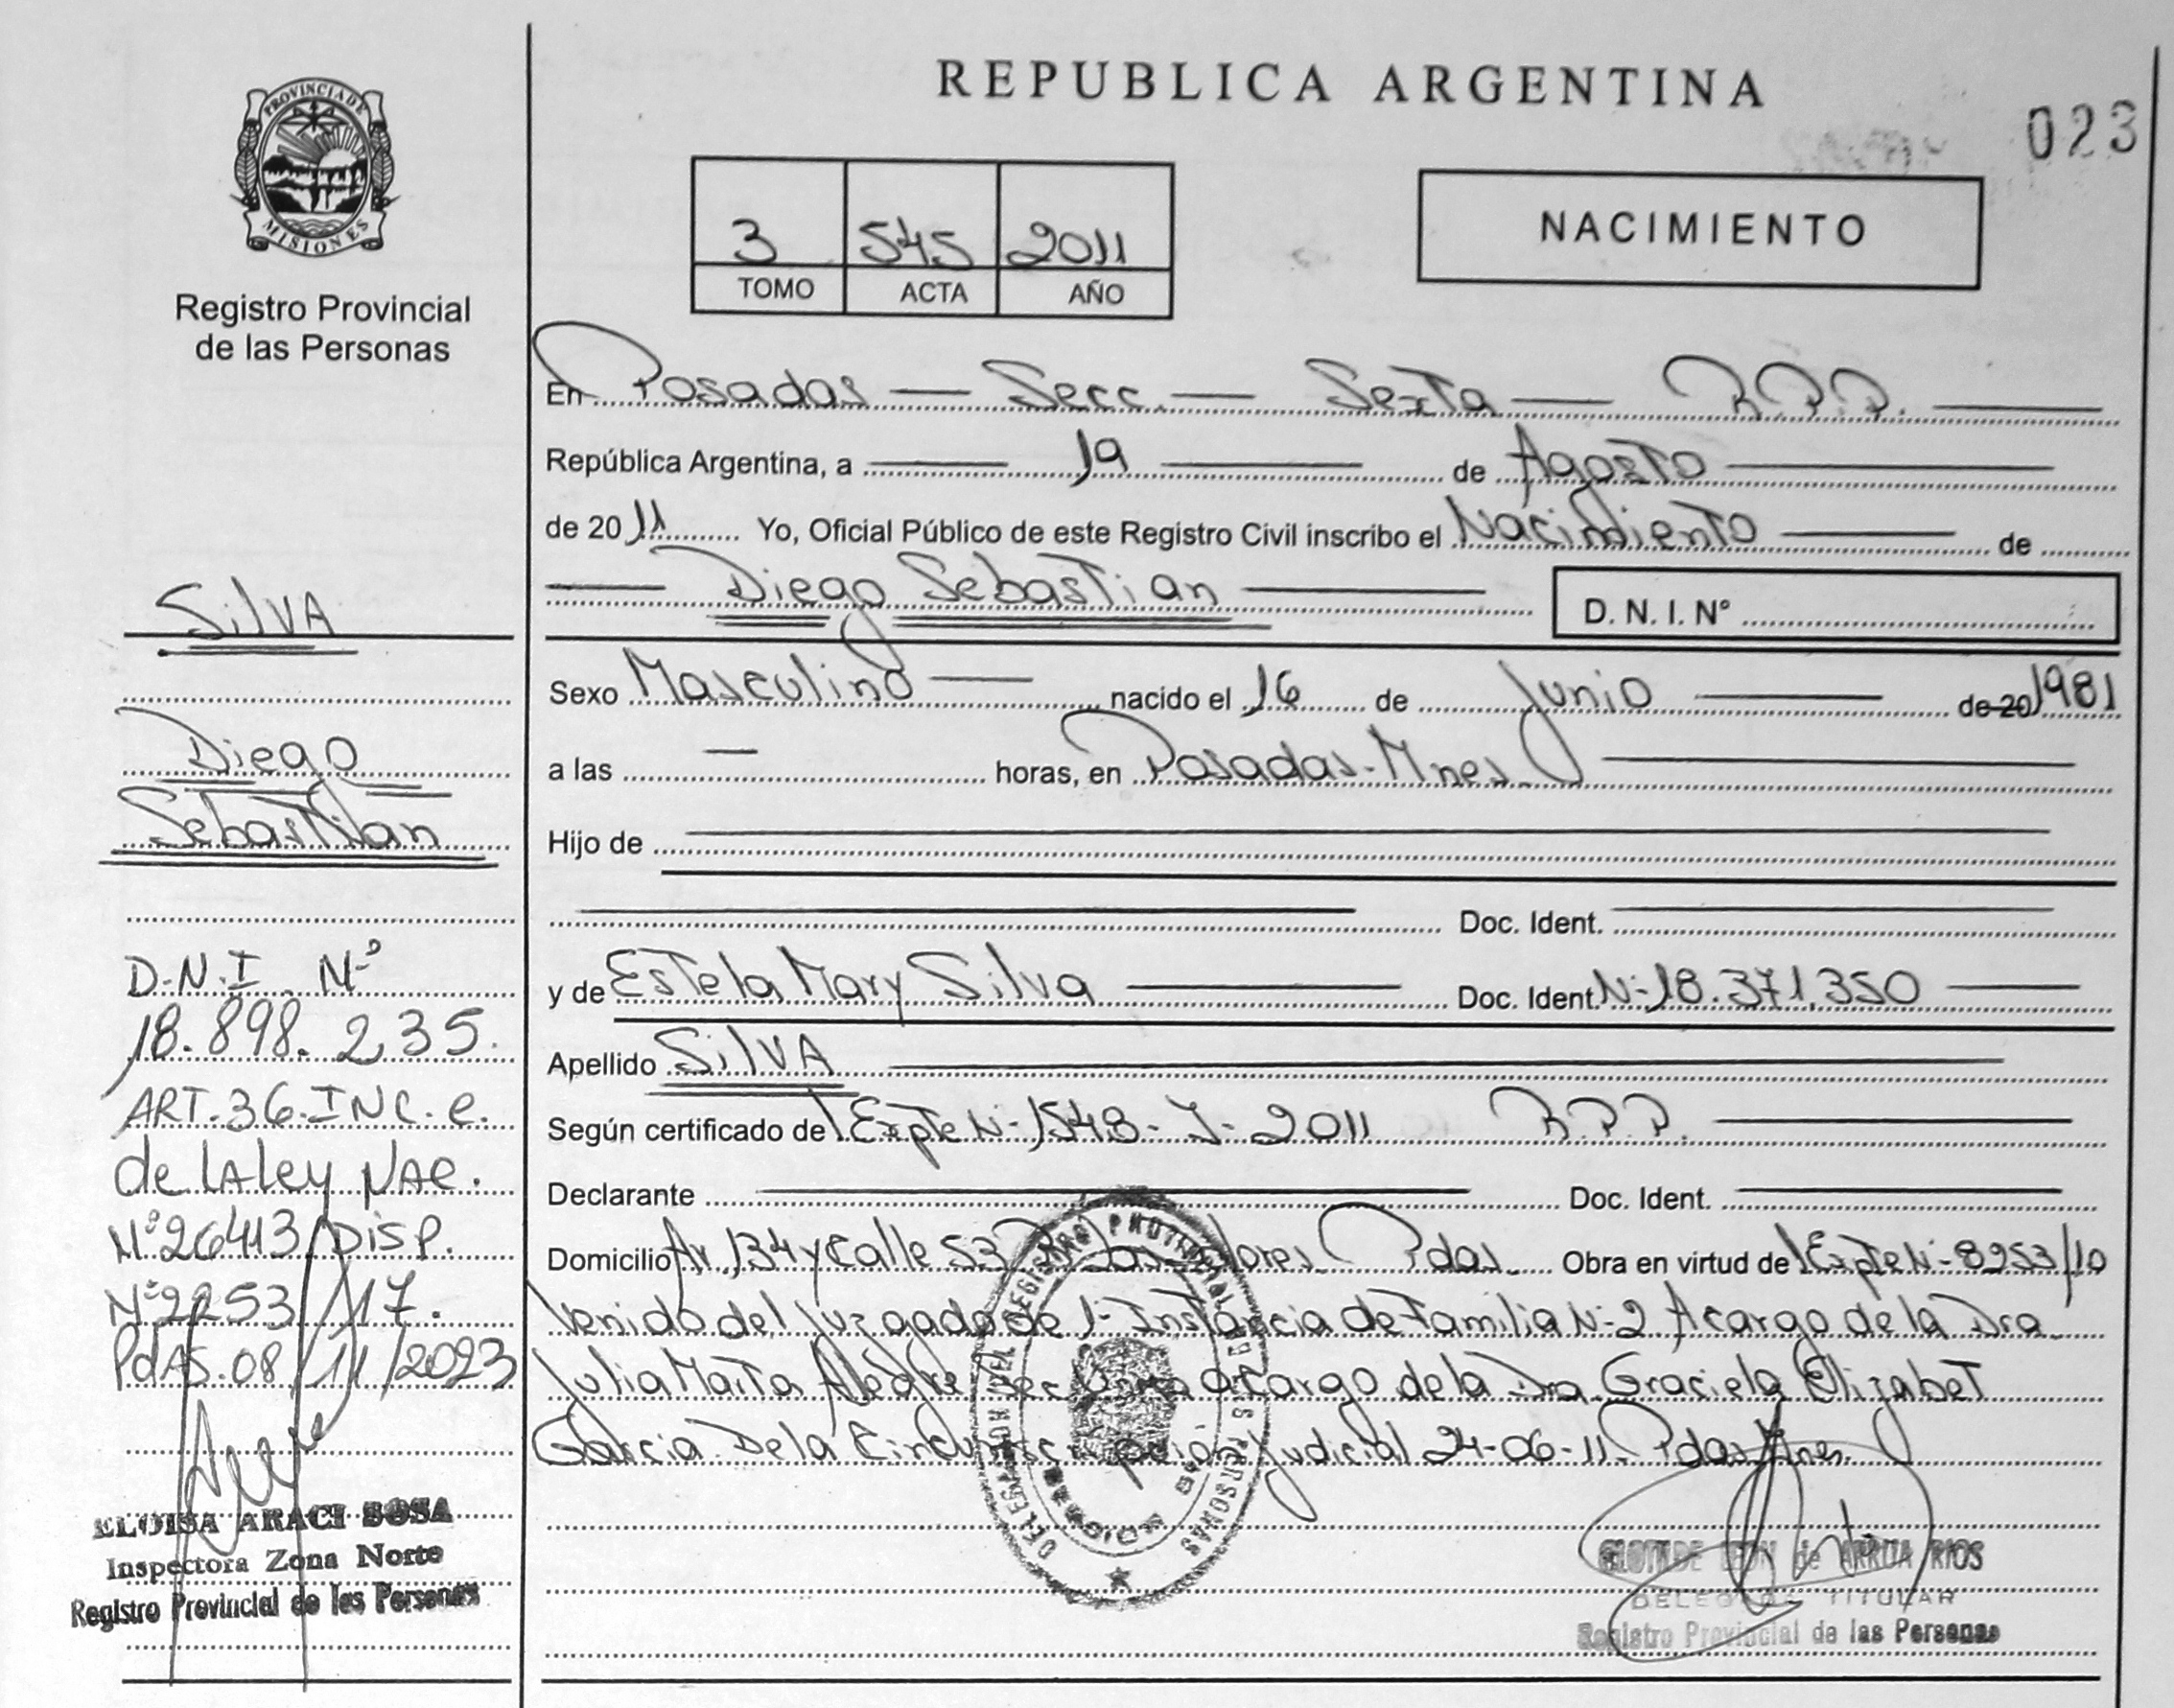 REPUBLICA ARGENTINA
023
PROVINCIA DE
MISIONES
Registro Provincial
de las Personas
3 545 2011
TOMO ACTA AÑO
NACIMIENTO
En Posadas — Secc. — Sexta — R.P.P. —
República Argentina, a — 19 — de Agosto —
de 2011 Yo, Oficial Público de este Registro Civil inscribo el Nacimiento — de
— Diego Sebastian — D. N. I. N°
Sexo Masculino — nacido el 16 de Junio — de 20 1981
a las — horas, en Posadas-Mnes —
Hijo de —
— Doc. Ident. —
y de Estela Mary Silva — Doc. Ident. N-18.371.350 —
Apellido SilVA —
Según certificado de Expte N-1548-J-2011 R.P.P. —
Declarante — Doc. Ident. —
Domicilio Av. 134 y Calle 53 Pdas. Obra en virtud de Expte N-8253/10
Venido del Juzgado de 1- Instancia de Familia N-2 A cargo de la Dra
Julia Marta Alegre a cargo de la Dra Graciela Elizabet
Garcia De la Circunscripción Judicial 24-06-11 Pdas Mnes.
SilVA
Diego
Sebastian
D.N.I. N°
18.898.235.
ART.36.INC.e.
de LA Ley NAC.
N°26413/DISP.
N°2253/17.
PdAS.08/11/2023
ELOISA ARACI SOSA
Inspectora Zona Norte
Registro Provincial de las Personas
de ARRUA RIOS
TITULAR
Registro Provincial de las Personas